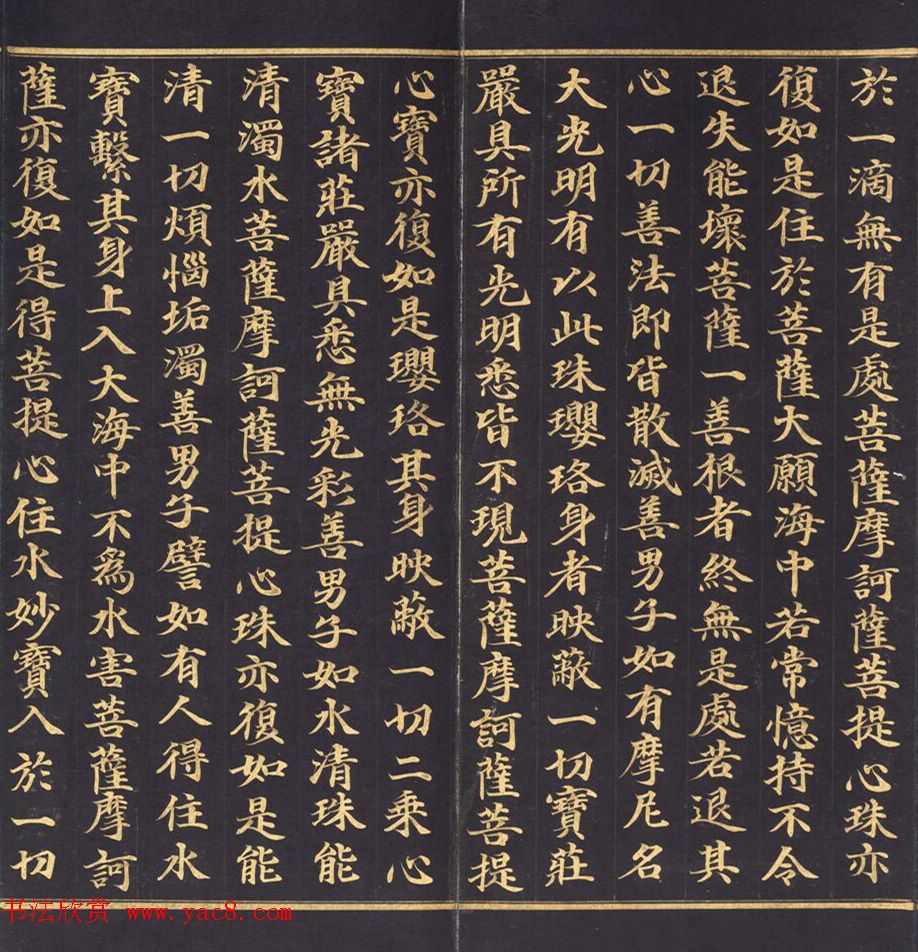 於一滴無有是處菩薩摩訶薩菩提心珠亦
復如是住於菩薩大願海中若常憶持不令
退失能壞菩薩一善根者終無是處若退其
心一切善法即皆散滅善男子如有摩尼名
大光明有以此珠瓔珞身者映蔽一切寶莊
嚴具所有光明悉皆不現菩薩摩訶薩菩提
心寶亦復如是瓔珞其身映蔽一切二乘心
寶諸莊嚴具悉無光彩善男子如水清珠能
清濁水菩薩摩訶薩菩提心珠亦復如是能
清一切煩惱垢濁善男子譬如有人得住水
寶繫其身上入大海中不為水害菩薩摩訶
薩亦復如是得菩提心住水妙寶入於一切
书法欣赏 www.yac8.com